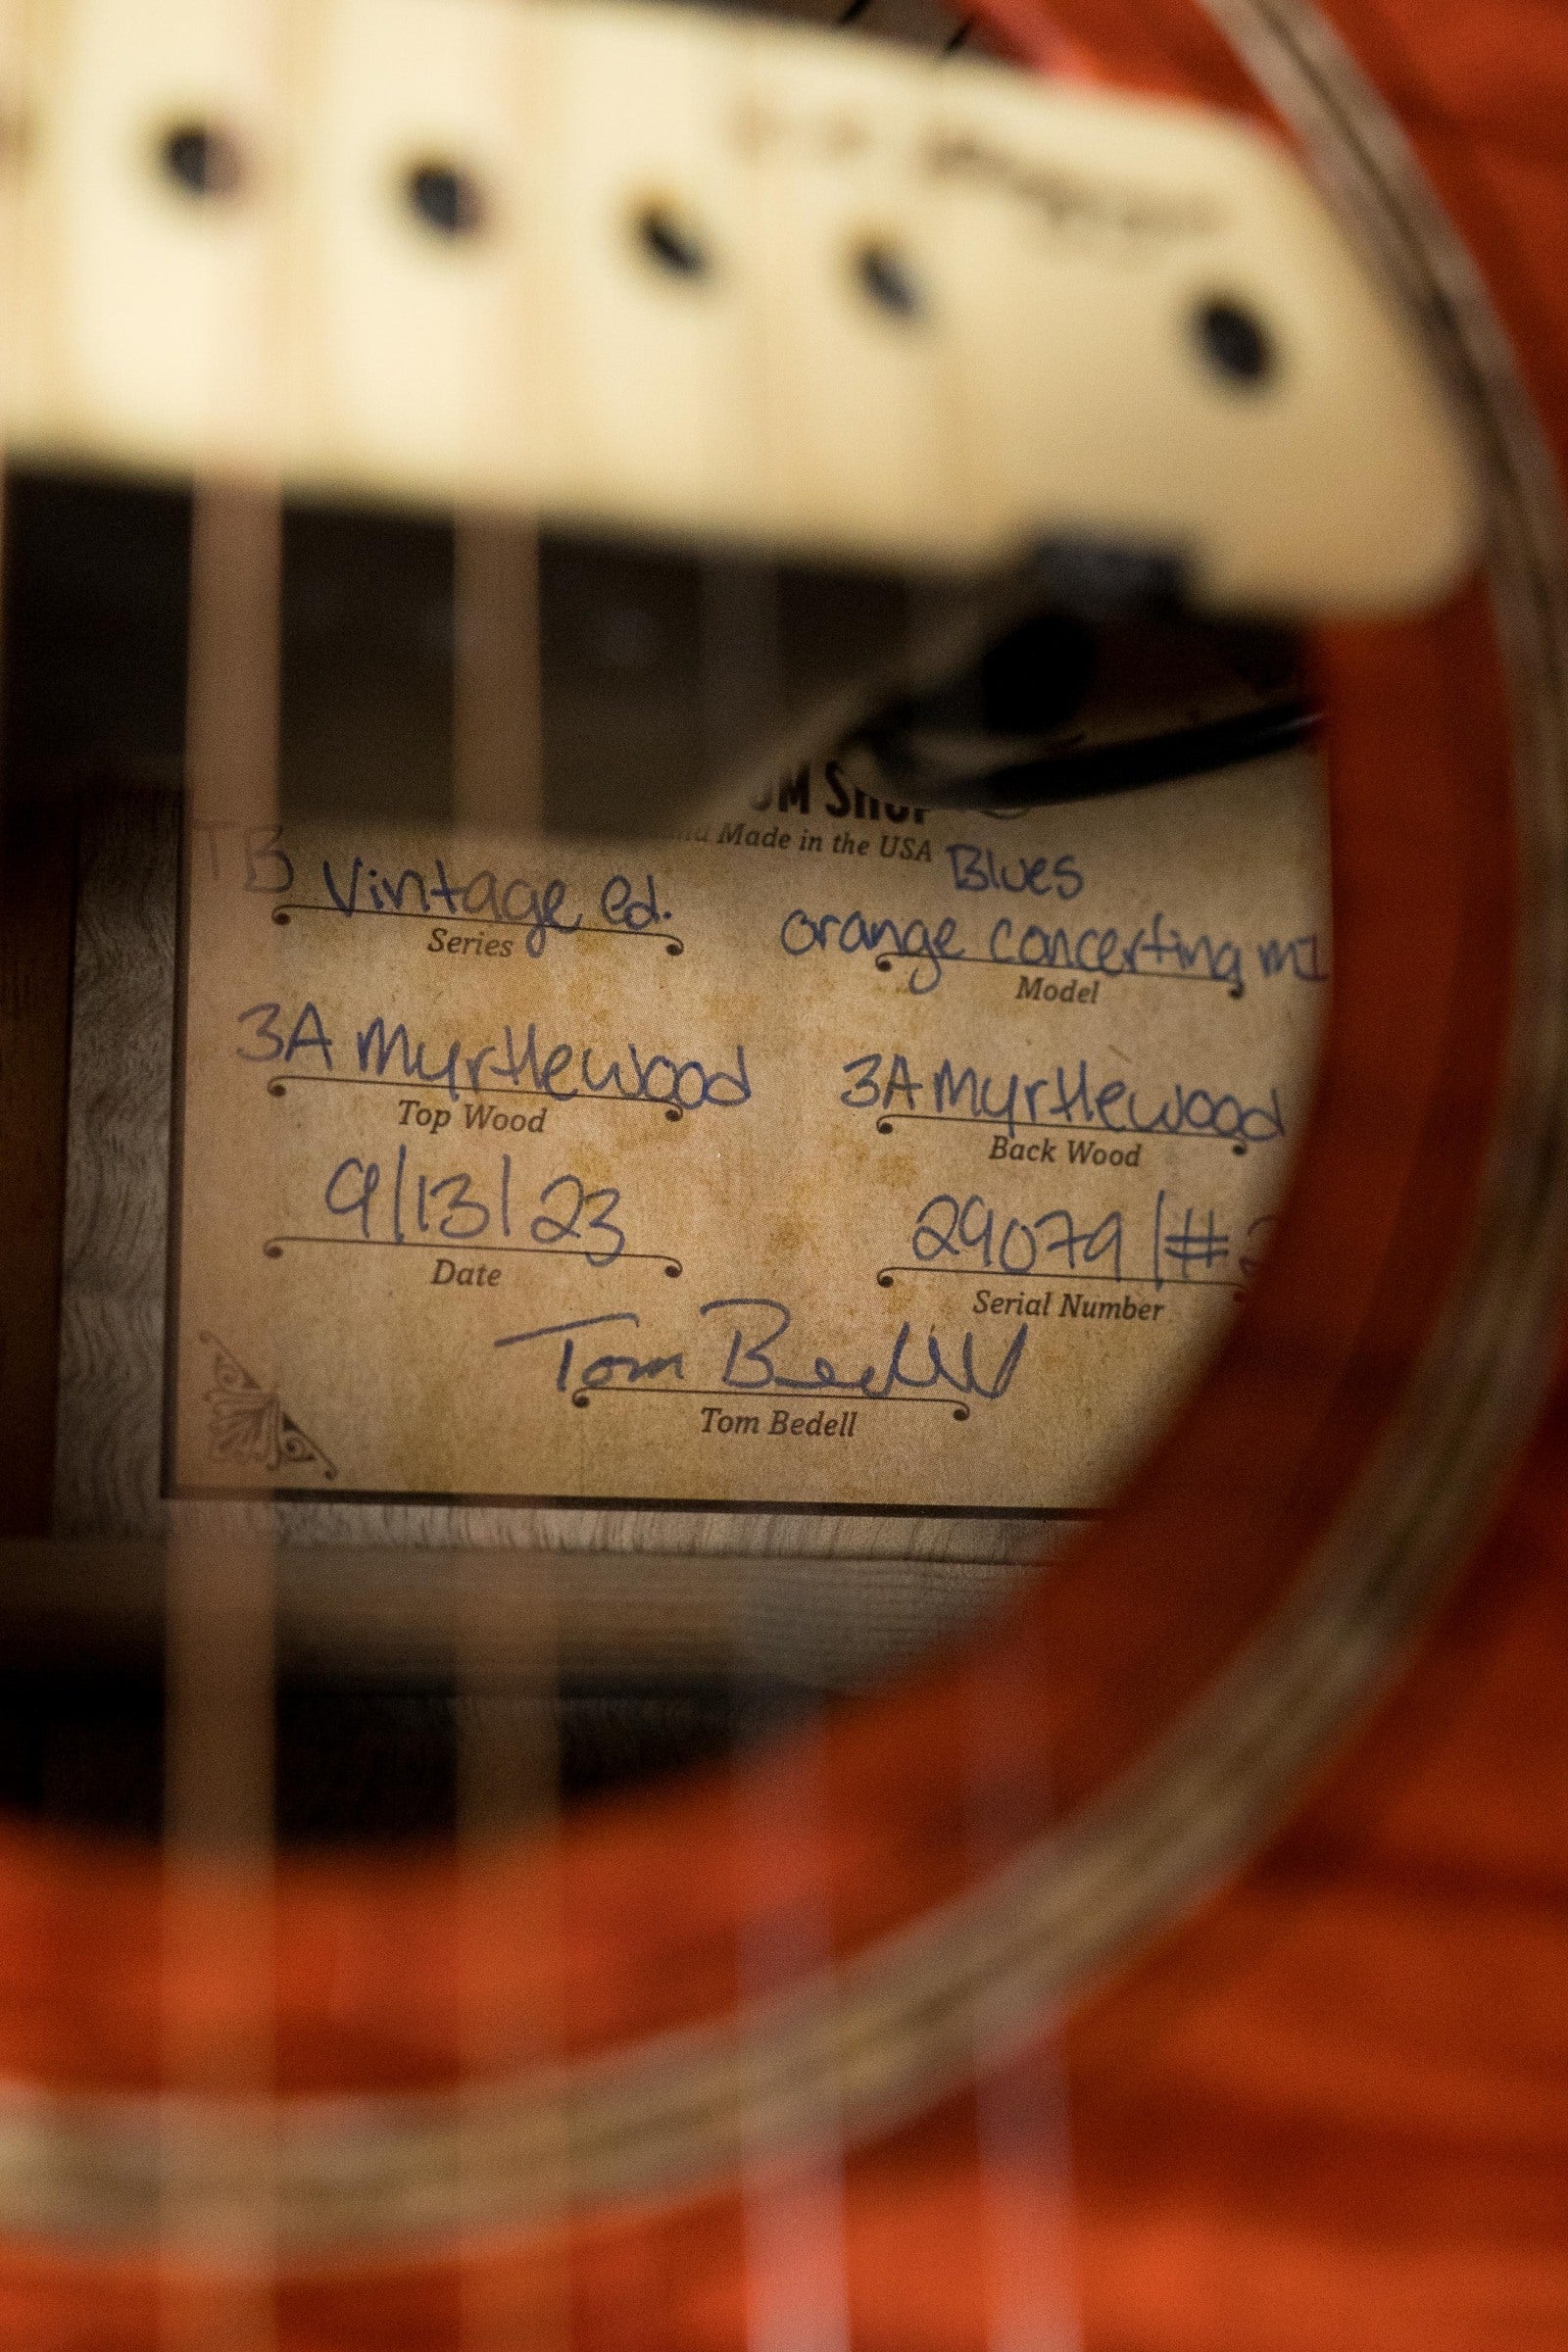 Made in the USA
TB Vintage ed.
Series
Blues
orange concerting
Model
3A Myrtlewood
Top Wood
3A Myrtlewood
Back Wood
9/13/23
Date
29079/#
Serial Number
Tom Bedell
Tom Bedell